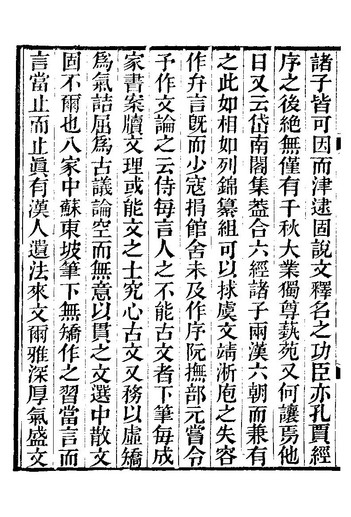 諸子皆可因而津逮固說文釋名之功臣亦孔賈經
序之後絶無僅有千秋大業獨尊蓺苑又何讓焉他
日又云岱南閣集葢合六經諸子兩漢六朝而兼有
之此如相如列錦纂組可以捄虞文靖淅庖之失容
作弁言旣而少寇捐館舍未及作序阮撫部元嘗令
予作文論之云侍每言人之不能古文者下筆每成
家書案牘文理或能文之士究心古文又務以虛矯
為氣詰屈為古議論空而無意以貫之文選中散文
固不爾也八家中蘇東坡筆下無矯作之習當言而
言當止而止眞有漢人遺法來文爾雅深厚氣盛文